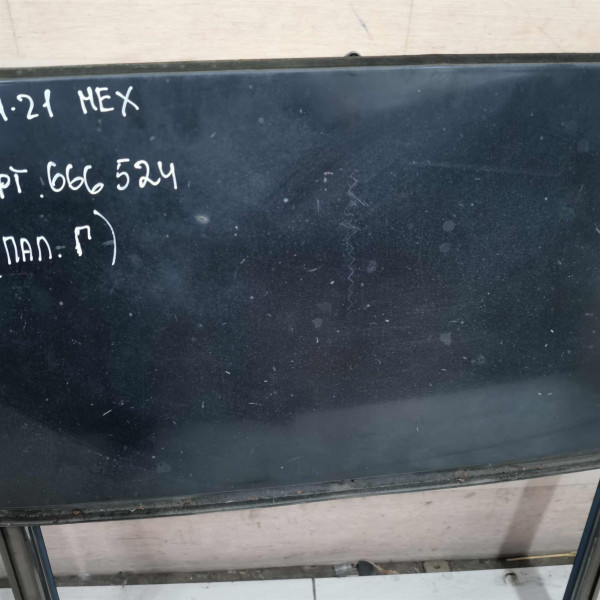 1.21 МЕХ
рт. 666 524
(ПАЛ. Г)